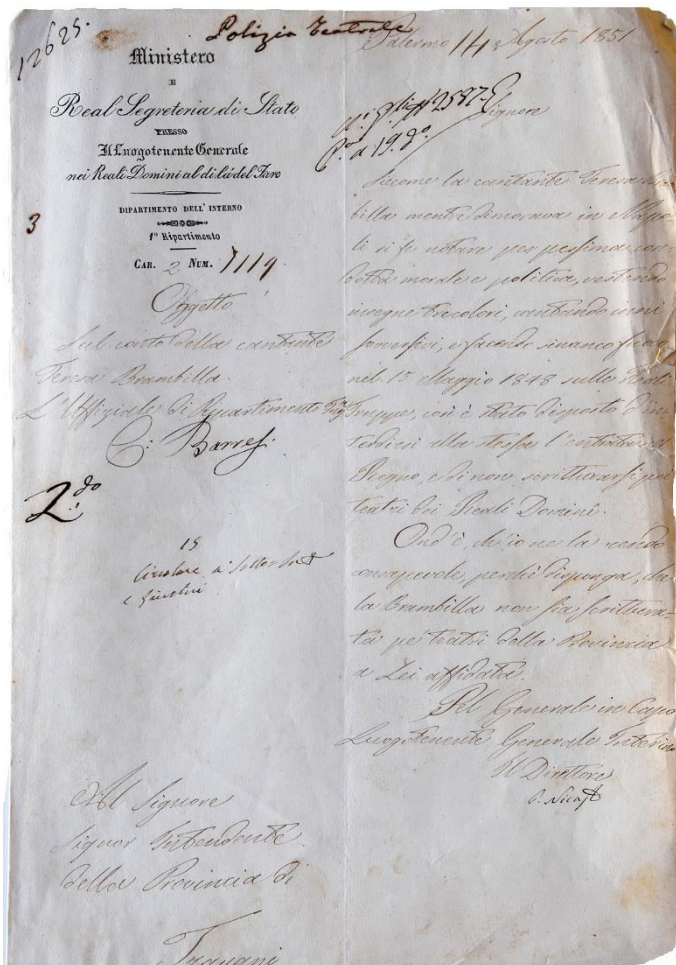 12625.
Polizia Teatrale
Ministero
E
Real Segreteria di Stato
PRESSO
Il Luogotenente Generale
nei Reali Domini al di là del Faro
DIPARTIMENTO DELL' INTERNO
1° Ripartimento
CAR. 2 NUM. 7119
3
Oggetto
Sul conto della cantante
Teresa Brambilla.
L'Uffiziale di Ripartimento
C: Barresi
2.do
15
Circolare a' Sotto
e Giustizi
Al Signore
Signor Intendente
della Provincia di
Trapani
Palermo 14 Agosto 1851
2587
a 19. do.
Signore
Siccome la cantante Teresa Bram
billa mentre dimorava in Napo
li si fe notare per pessima con
dotta morale e politica, vestendo
insegne tricolori, cantando inni
sonnosivi, e facendo sinanco fuoco
nel 15 Maggio 1848 sulle Reali
Truppe, così è stato disposto d'in
terdirsi alla stessa l'entrata nel
Regno, e di non scritturarsi pei
teatri dei Reali Domini.
Ond'è, ch'io ne la rendo
consapevole, perchè disponga, che
la Brambilla non sia scrittura
ta pe' teatri della Provincia
a Lei affidata.
Pel Generale in Capo
Luogotenente Generale Interino
Il Direttore